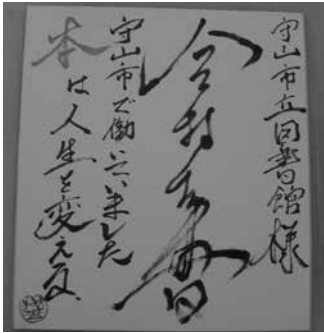 守山市立図書館様
今村翔吾
守山市で働いていました
本は人生を変える